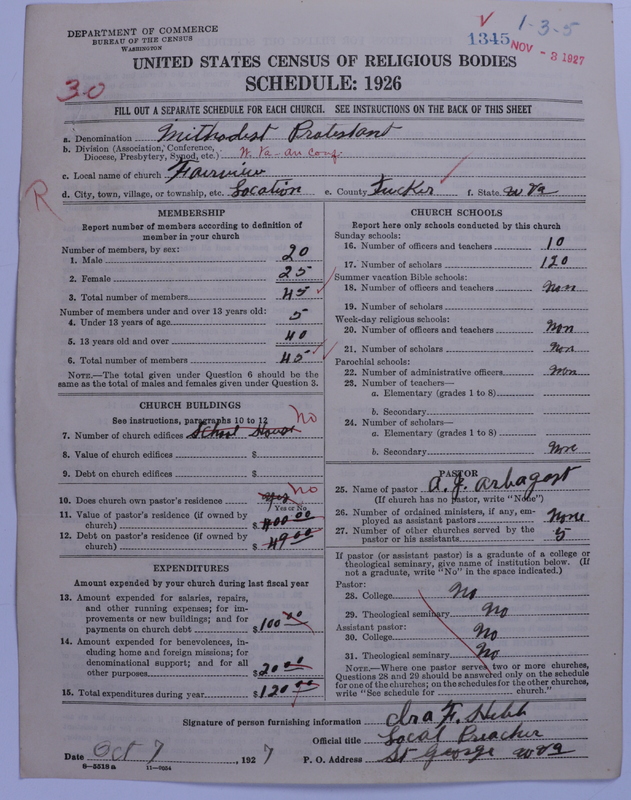 DEPARTMENT OF COMMERCE
BUREAU OF THE CENSUS
WASHINGTON
1345
1-3-5
NOV - 3 1927
UNITED STATES CENSUS OF RELIGIOUS BODIES
SCHEDULE: 1926
30
FILL OUT A SEPARATE SCHEDULE FOR EACH CHURCH. SEE INSTRUCTIONS ON THE BACK OF THIS SHEET
a. Denomination Mithodist Protestant
b. Division (Association, Conference, Diocese, Presbytery, Synod, etc.) W. Va-an Conf.
c. Local name of church Fairview
R
d. City, town, village, or township, etc. Location e. County Tucker f. State W Va
MEMBERSHIP
Report number of members according to definition of
member in your church
Number of members, by sex:
1. Male 20
2. Female 25
3. Total number of members 45
Number of members under and over 13 years old:
4. Under 13 years of age 5
5. 13 years old and over 40
6. Total number of members 45
NOTE.—The total given under Question 6 should be the
same as the total of males and females given under Question 3.
CHURCH BUILDINGS
See instructions, paragraphs 10 to 12
7. Number of church edifices School House No
8. Value of church edifices $
9. Debt on church edifices $
10. Does church own pastor's residence yes No
Yes or No
11. Value of pastor's residence (if owned by
church) $400.00
12. Debt on pastor's residence (if owned by
church) $49.00
EXPENDITURES
Amount expended by your church during last fiscal year
13. Amount expended for salaries, repairs,
and other running expenses; for im-
provements or new buildings; and for
payments on church debt $100.00
14. Amount expended for benevolences, in-
cluding home and foreign missions; for
denominational support; and for all
other purposes $20.00
15. Total expenditures during year $120.00
CHURCH SCHOOLS
Report here only schools conducted by this church
Sunday schools:
16. Number of officers and teachers 10
17. Number of scholars 120
Summer vacation Bible schools:
18. Number of officers and teachers Non
19. Number of scholars
Week-day religious schools:
20. Number of officers and teachers Non
21. Number of scholars Non
Parochial schools:
22. Number of administrative officers Non
23. Number of teachers—
a. Elementary (grades 1 to 8)
b. Secondary
24. Number of scholars—
a. Elementary (grades 1 to 8)
b. Secondary None
PASTOR
25. Name of pastor A. J. Arbagast
(If church has no pastor, write "None")
26. Number of ordained ministers, if any, em-
ployed as assistant pastors None
27. Number of other churches served by the
pastor or his assistants 5
If pastor (or assistant pastor) is a graduate of a college or
theological seminary, give name of institution below. (If
not a graduate, write "No" in the space indicated.)
Pastor:
28. College No
29. Theological seminary No
Assistant pastor:
30. College No
31. Theological seminary No
NOTE.—Where one pastor serves two or more churches,
Questions 28 and 29 should be answered only on the schedule
for one of the churches; on the schedules for the other churches,
write "See schedule for church."
Signature of person furnishing information Ira F. Hebb
Official title Local Preacher
Date Oct 7, 1927 P. O. Address St George W Va
8-5518a 11-9054